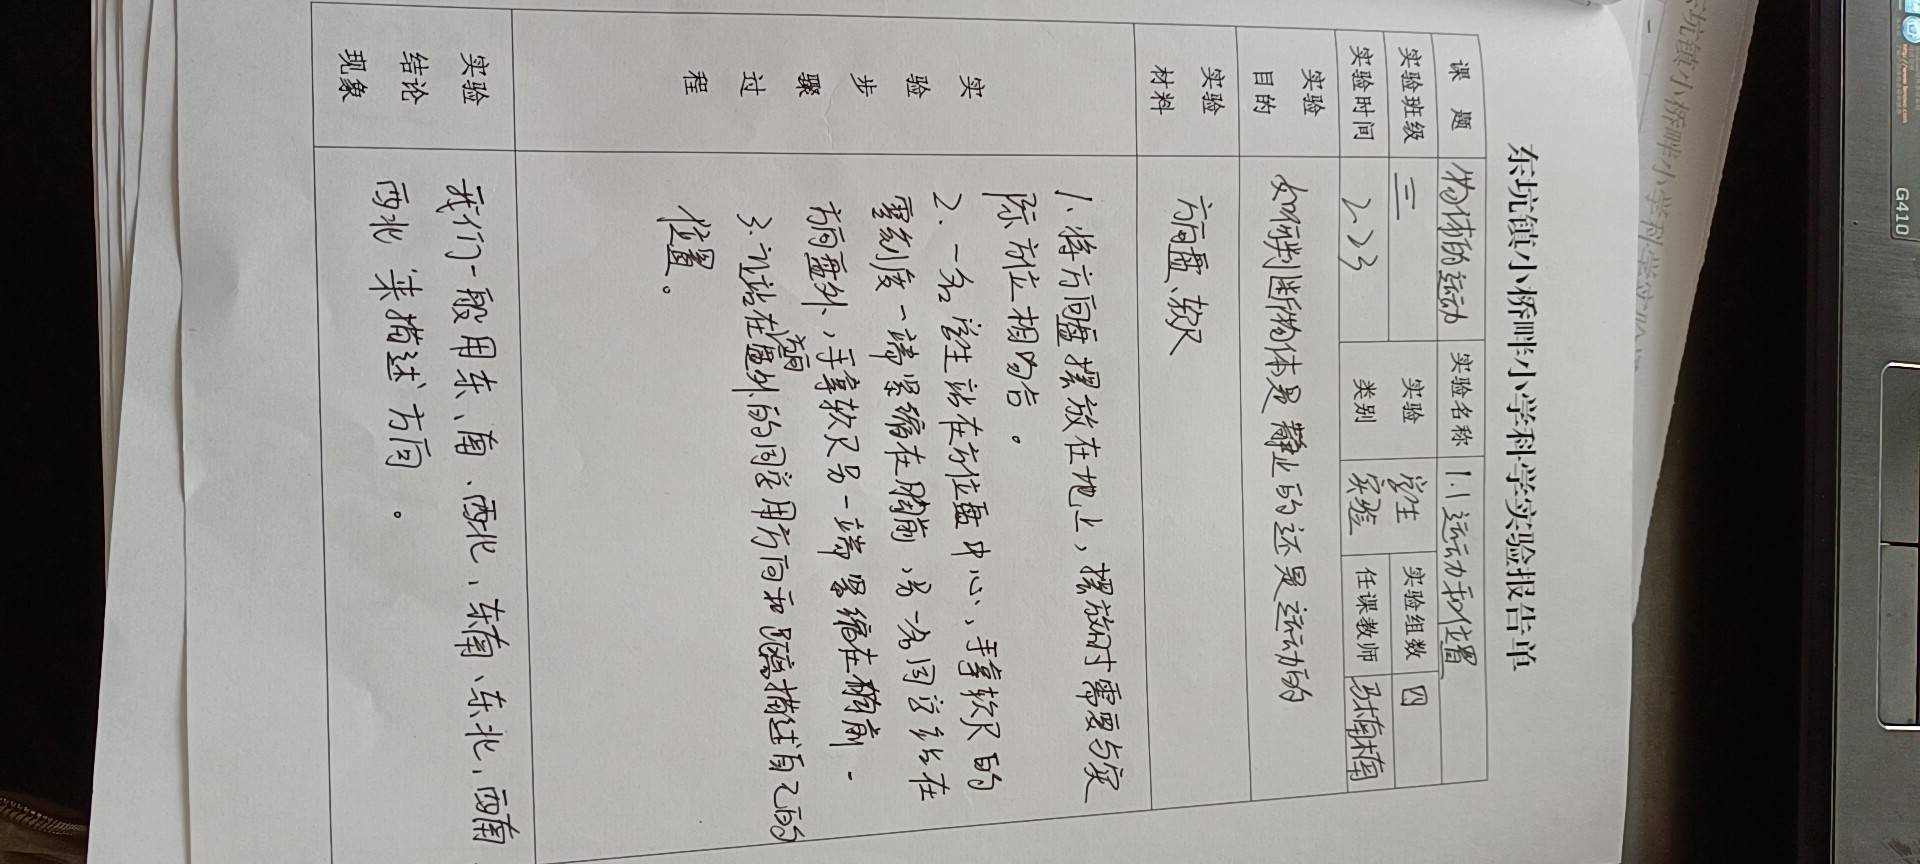 东坑镇小桥畔小学科学实验报告单
课 题 物体的运动 实验名称 1.1运动和位置
实验班级 三 实验类别 学生实验 实验组数 四
实验时间 2.23 任课教师
实验目的 如何判断物体是静止的还是运动的
实验材料 方向盘、软尺
实验步骤过程
1.将方向盘摆放在地上,摆放时需要与实
际方位相吻合。
2.一名学生站在方位盘中心,手拿软尺的
零刻度一端紧缩在胸前,另一名同学站在
方向盘外,手拿软尺另一端紧缩在胸前.
3.让站在方向盘外的同学用方向和距离描述自己的
位置。
实验结论现象
我们一般用东、南、西北、东南、东北、西南、
西北 来描述方向。
坑镇小桥畔小学科学实
G410